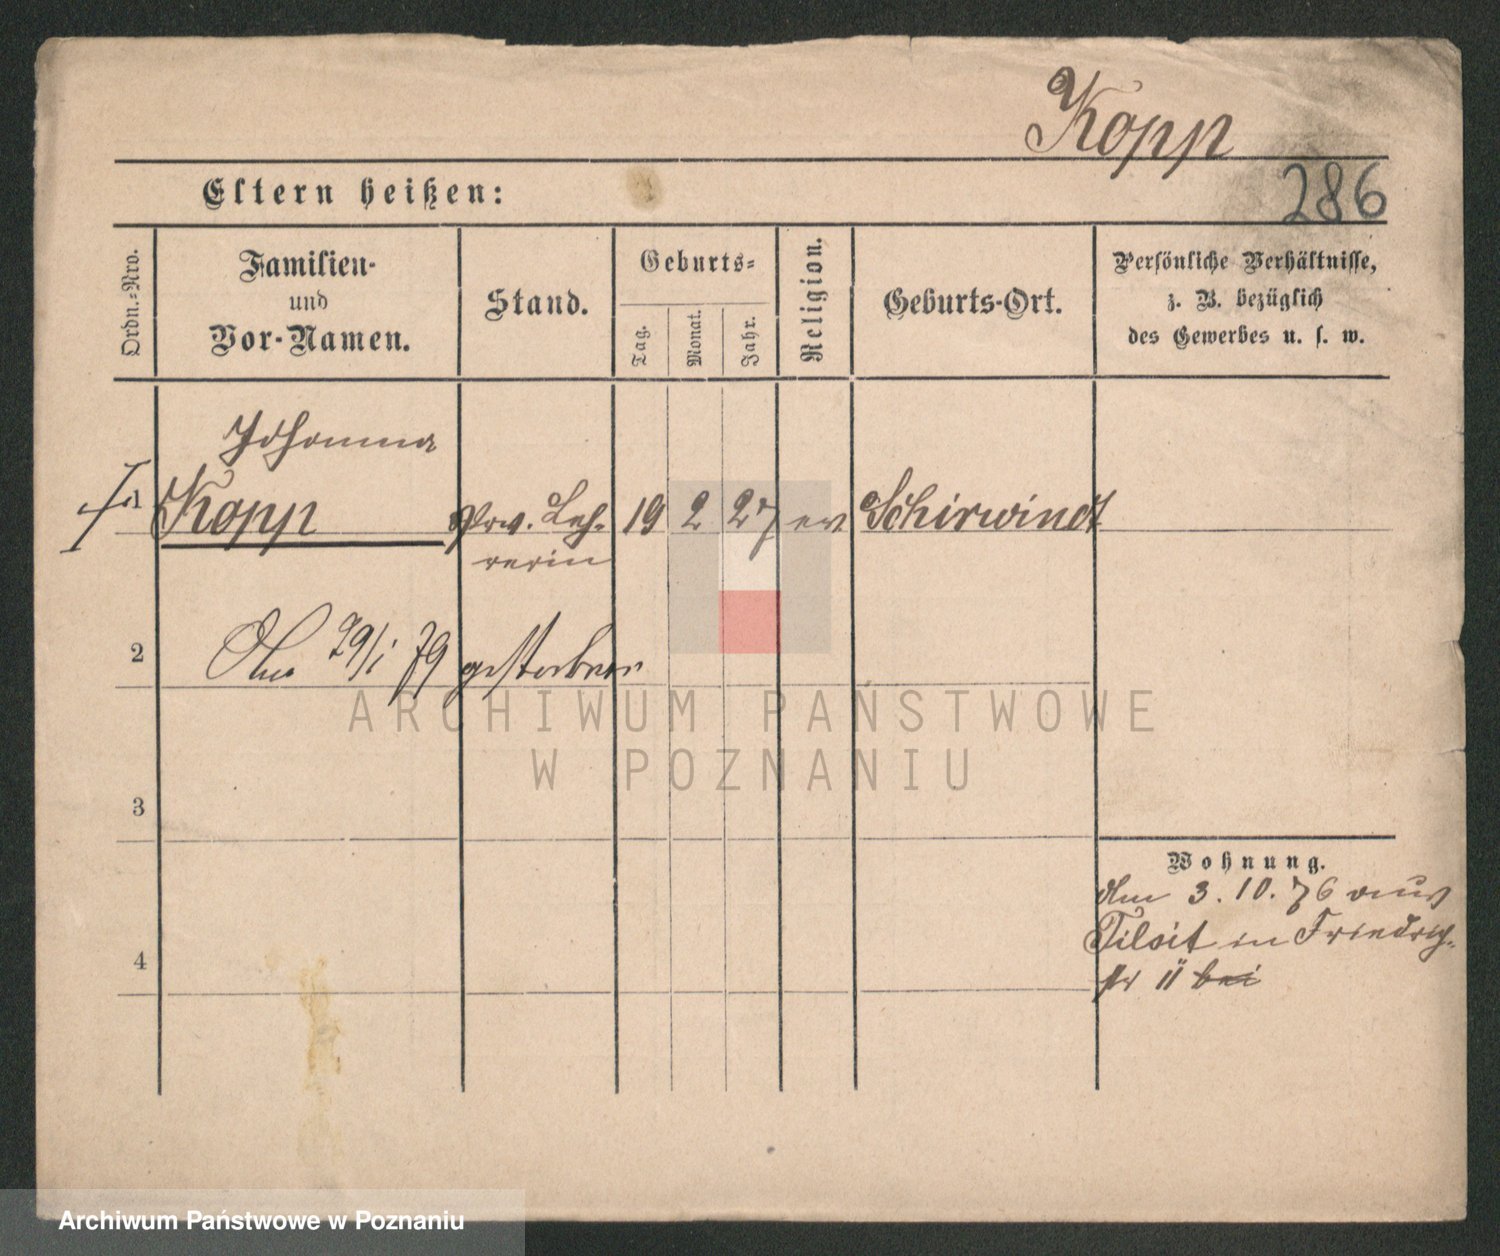 Kopp
286
Eltern heißen:
Ordn.-Nro.
Familien-
und
Vor-Namen.
Stand.
Geburts-
Tag.
Monat.
Jahr.
Religion.
Geburts-Ort.
Persönliche Verhältnisse,
z. B. bezüglich
des Gewerbes u. s. w.
Johanna
1 Kopp Prv. Leh- 19 2 27 ev Schirwindt
rerin
2 Am 29/1 79 gestorben
3
4
Wohnung.
Am 3. 10. 76 aus
Tilsit in Friedrich-
str 11 bei
ARCHIWUM PAŃSTWOWE
W POZNANIU
Archiwum Państwowe w Poznaniu